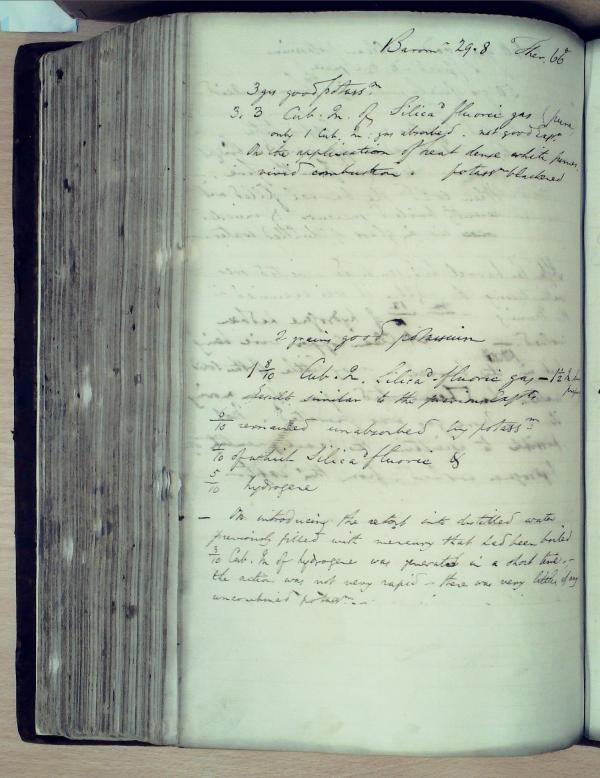 Barom.r 29.8 Ther. 66°
3 grs good potass.m
3,3 Cub. In. of Silica.d fluoric gas (pure
only 1 Cub. In. gas absorbed. not good exp.t
On the application of heat dense white fumes.
vivid combustion. potass.m blackened
2 grains good potassium
1 8/10 Cub. In. Silica.d fluoric gas
Result similar to the previous Exp.t
9/10 remained unabsorbed by potass.m
4/10 of which Silica.d fluoric &
5/10 hydrogene
— On introducing the retort into distilled water
previously filled with mercury that had been boiled
3/10 Cub. In of hydrogene was generated in a short time. –
the action was not very rapid – there was very little if any
uncombined potass.m –